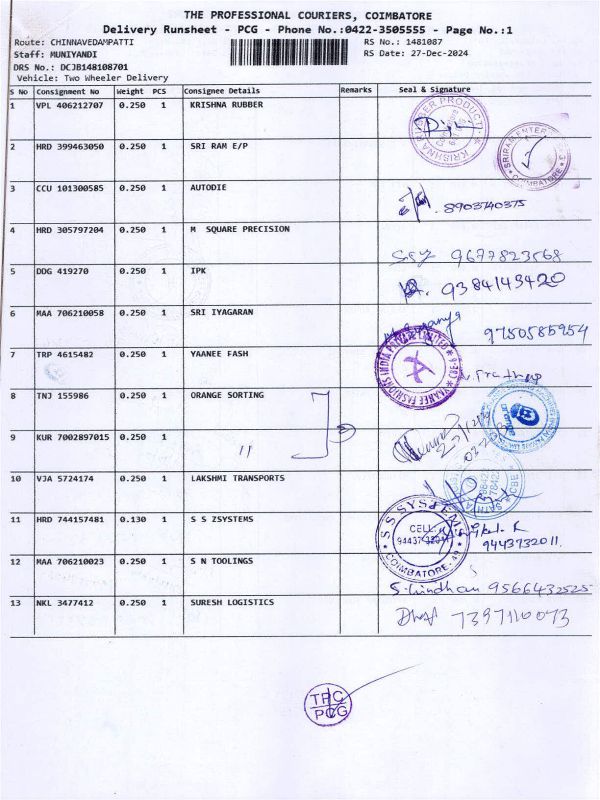 THE PROFESSIONAL COURIERS, COIMBATORE
Delivery Runsheet - PCG - Phone No.:0422-3505555 - Page No.:1
Route: CHINNAVEDAMPATTI
RS No.: 1481087
Staff: MUNIYANDI
RS Date: 27-Dec-2024
DRS No.: DCJB148108701
Vehicle: Two Wheeler Delivery
S No Consignment No Weight PCS Consignee Details Remarks Seal & Signature
1 VPL 406212707 0.250 1 KRISHNA RUBBER
2 HRD 399463050 0.250 1 SRI RAM E/P
3 CCU 101300585 0.250 1 AUTODIE 8903740375
4 HRD 305797204 0.250 1 M SQUARE PRECISION 9677823568
5 DDG 419270 0.250 1 IPK 9384143420
6 MAA 706210058 0.250 1 SRI IYAGARAN 9750585954
7 TRP 4615482 0.250 1 YAANEE FASH
YAANEE FASHIONS INDIA PRIVATE LIMITED
8 TNJ 155986 0.250 1 ORANGE SORTING
9 KUR 7002897015 0.250 1 "
10 VJA 5724174 0.250 1 LAKSHMI TRANSPORTS
11 HRD 744157481 0.130 1 S S ZSYSTEMS
S S SYSTEMS
CELL
COIMBATORE
9443732011
12 MAA 706210023 0.250 1 S N TOOLINGS
9566432525
13 NKL 3477412 0.250 1 SURESH LOGISTICS 7397110073
TPC
PCG